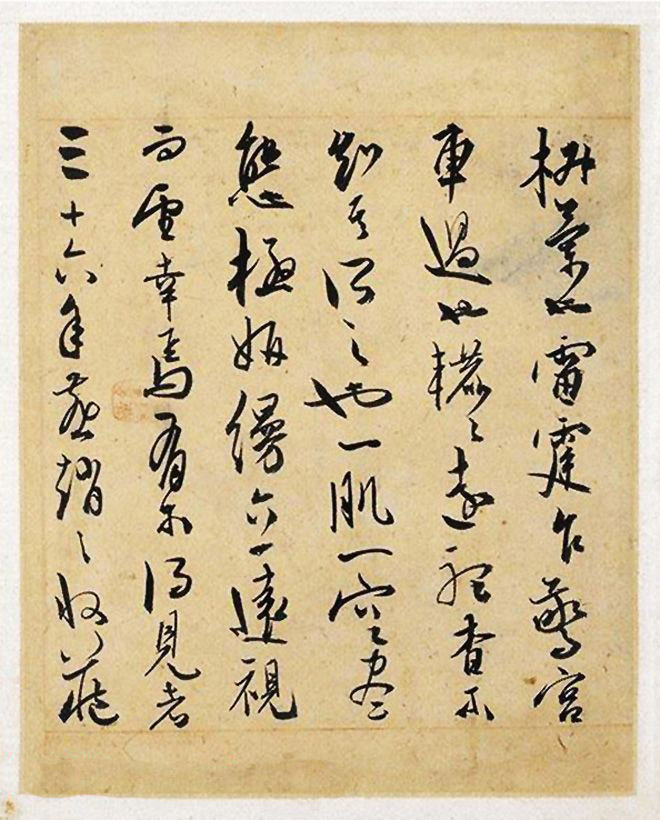 椒蘭也雷霆乍驚宮
車過也轆々遠聽杳不
知其所之也一肌一容盡
態極妍縵立遠視
而望幸焉有不得見者
三十六年燕趙之收藏